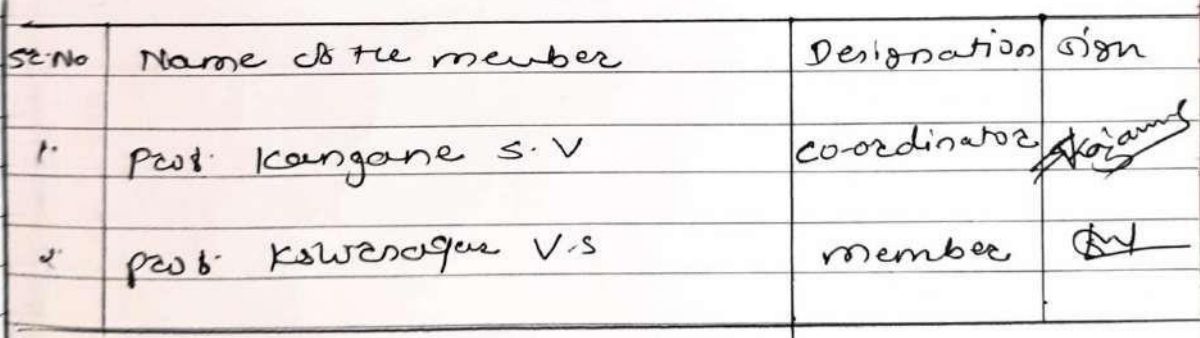 Sr.No Name of the member Designation sign
1. Prof. Kangane S.V co-ordinator
2. Prof. V.S member